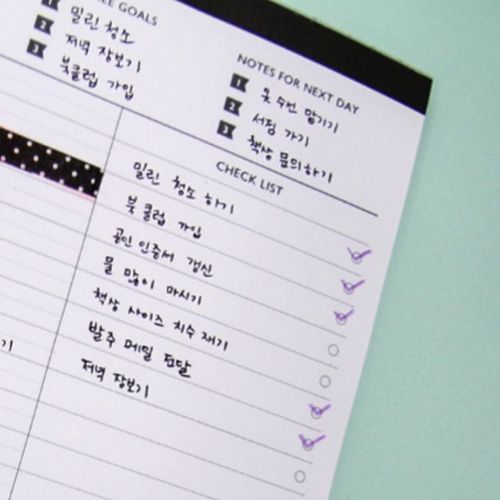 EE GOALS
1 밀린 청소
2 저녁 장보기
3 북클럽 가입
NOTES FOR NEXT DAY
1 옷 수선 맡기기
2 서점 가기
3 책상 문의하기
CHECK LIST
밀린 청소 하기
북클럽 가입
공인인증서 갱신
물 많이 마시기
책상 사이즈 치수 재기
발주 메일 전달
저녁 장보기
기